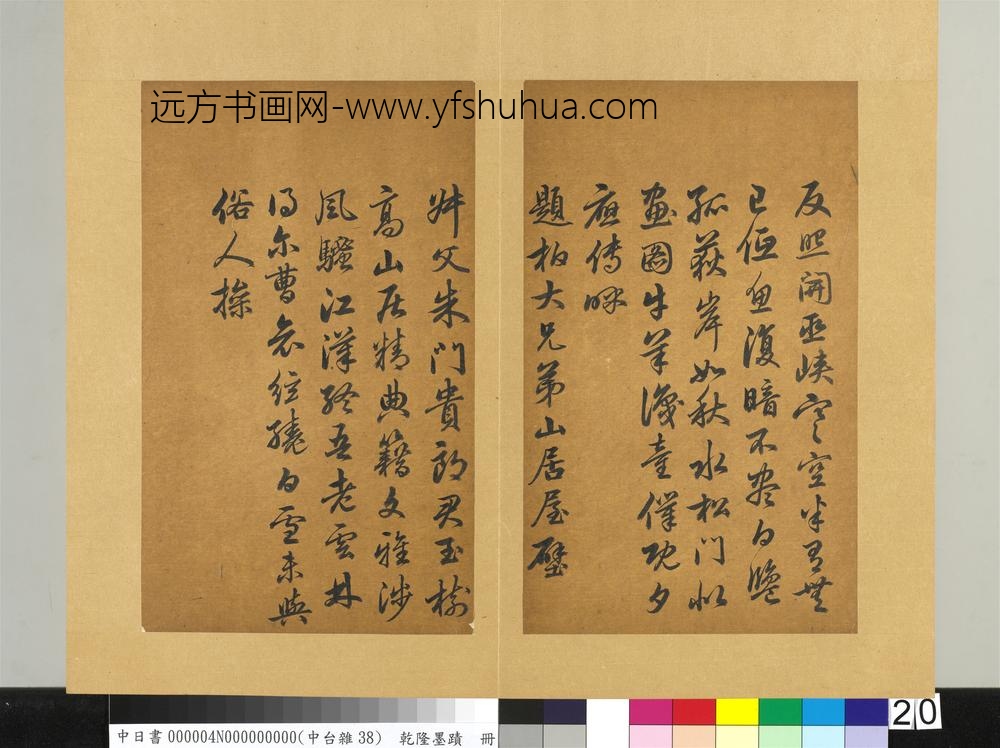 远方书画网-www.yfshuhua.com
反照開巫峽寒空半有無
已低魚復暗不盡白鹽
孤荻岸如秋水松門似
畫圖牛羊識童僕既夕
應傳呼
題柏大兄弟山居屋壁
叔父朱門貴郎君玉樹
高山居精典籍文雅涉
風騷江漢終吾老雲林
得尔曹哀絃繞白雪未與
俗人操
20
中日書000004N000000000(中台雜38) 乾隆墨蹟 冊